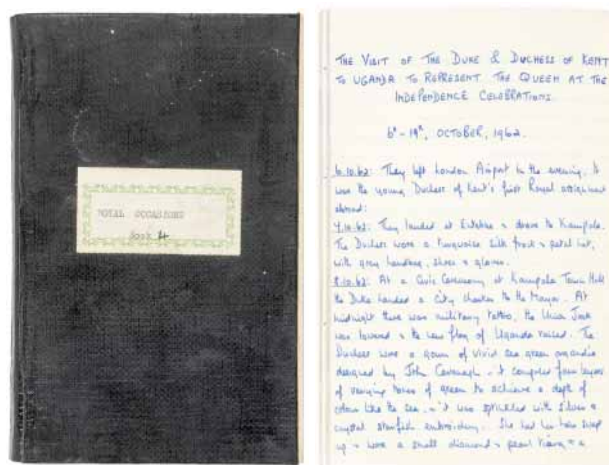 ROYAL OCCASIONS
Book 4
THE VISIT OF THE DUKE & DUCHESS OF KENT
TO UGANDA TO REPRESENT THE QUEEN AT THE
INDEPENDENCE CELEBRATIONS.
6th - 19th, OCTOBER, 1962.
6.10.62: They left London Airport in the evening. It
was the young Duchess of Kent's first Royal assignment
abroad.
7.10.62: They landed at Entebbe & drove to Kampala.
The Duchess wore a turquoise silk frock & petal hat,
with grey handbag, shoes & gloves.
8.10.62: At a Civic Ceremony at Kampala Town Hall
the Duke handed a City charter to the Mayor. At
midnight there was military tattoo, the Union Jack
was lowered & the new flag of Uganda raised. The
Duchess wore a gown of vivid sea green organdie
designed by John Cavanagh - it comprised four layers
of varying tones of green to achieve a depth of
colour like the sea, - it was sprinkled with silver &
crystal starfish embroidery. She had her hair swept
up & wore a small diamond & pearl tiara, & a